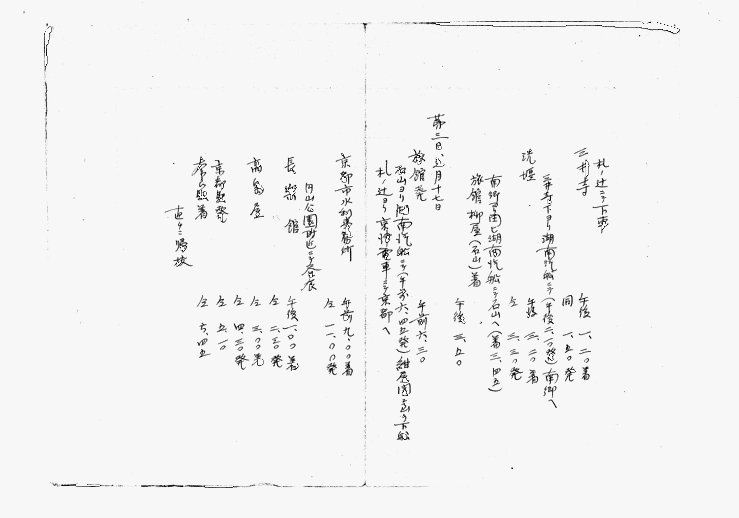 札ノ辻ニテ下車
三井寺 午後 一、二〇着
同 一、五〇発
三井寺下ヨリ湖南汽船ニテ(午後二、一〇発)南郷ヘ
洗堰 午後 三、二〇着
仝 三、三〇発
南郷ヨリ湖南汽船ニテ石山ヘ(着三、四五)
旅館 柳屋(石山)着 午後 三、五〇
第三日、 月十七日
旅館発 午前 六、三〇
石山ヨリ湖南汽船ニテ(午前六、四五発)紺屋関ニ 下船
札ノ辻ヨリ京津電車ニテ京都ヘ
京都市水利事務所 午前九、〇〇着
仝 一一、〇〇発
円山公園附近ニテ昼食
長楽館 午後一、〇〇着
仝 二、三〇発
高島屋 仝 三、〇〇着
仝 四、三〇発
京都駅発 仝 五、一〇
奈良駅着 仝 六、四五
直ニ帰校